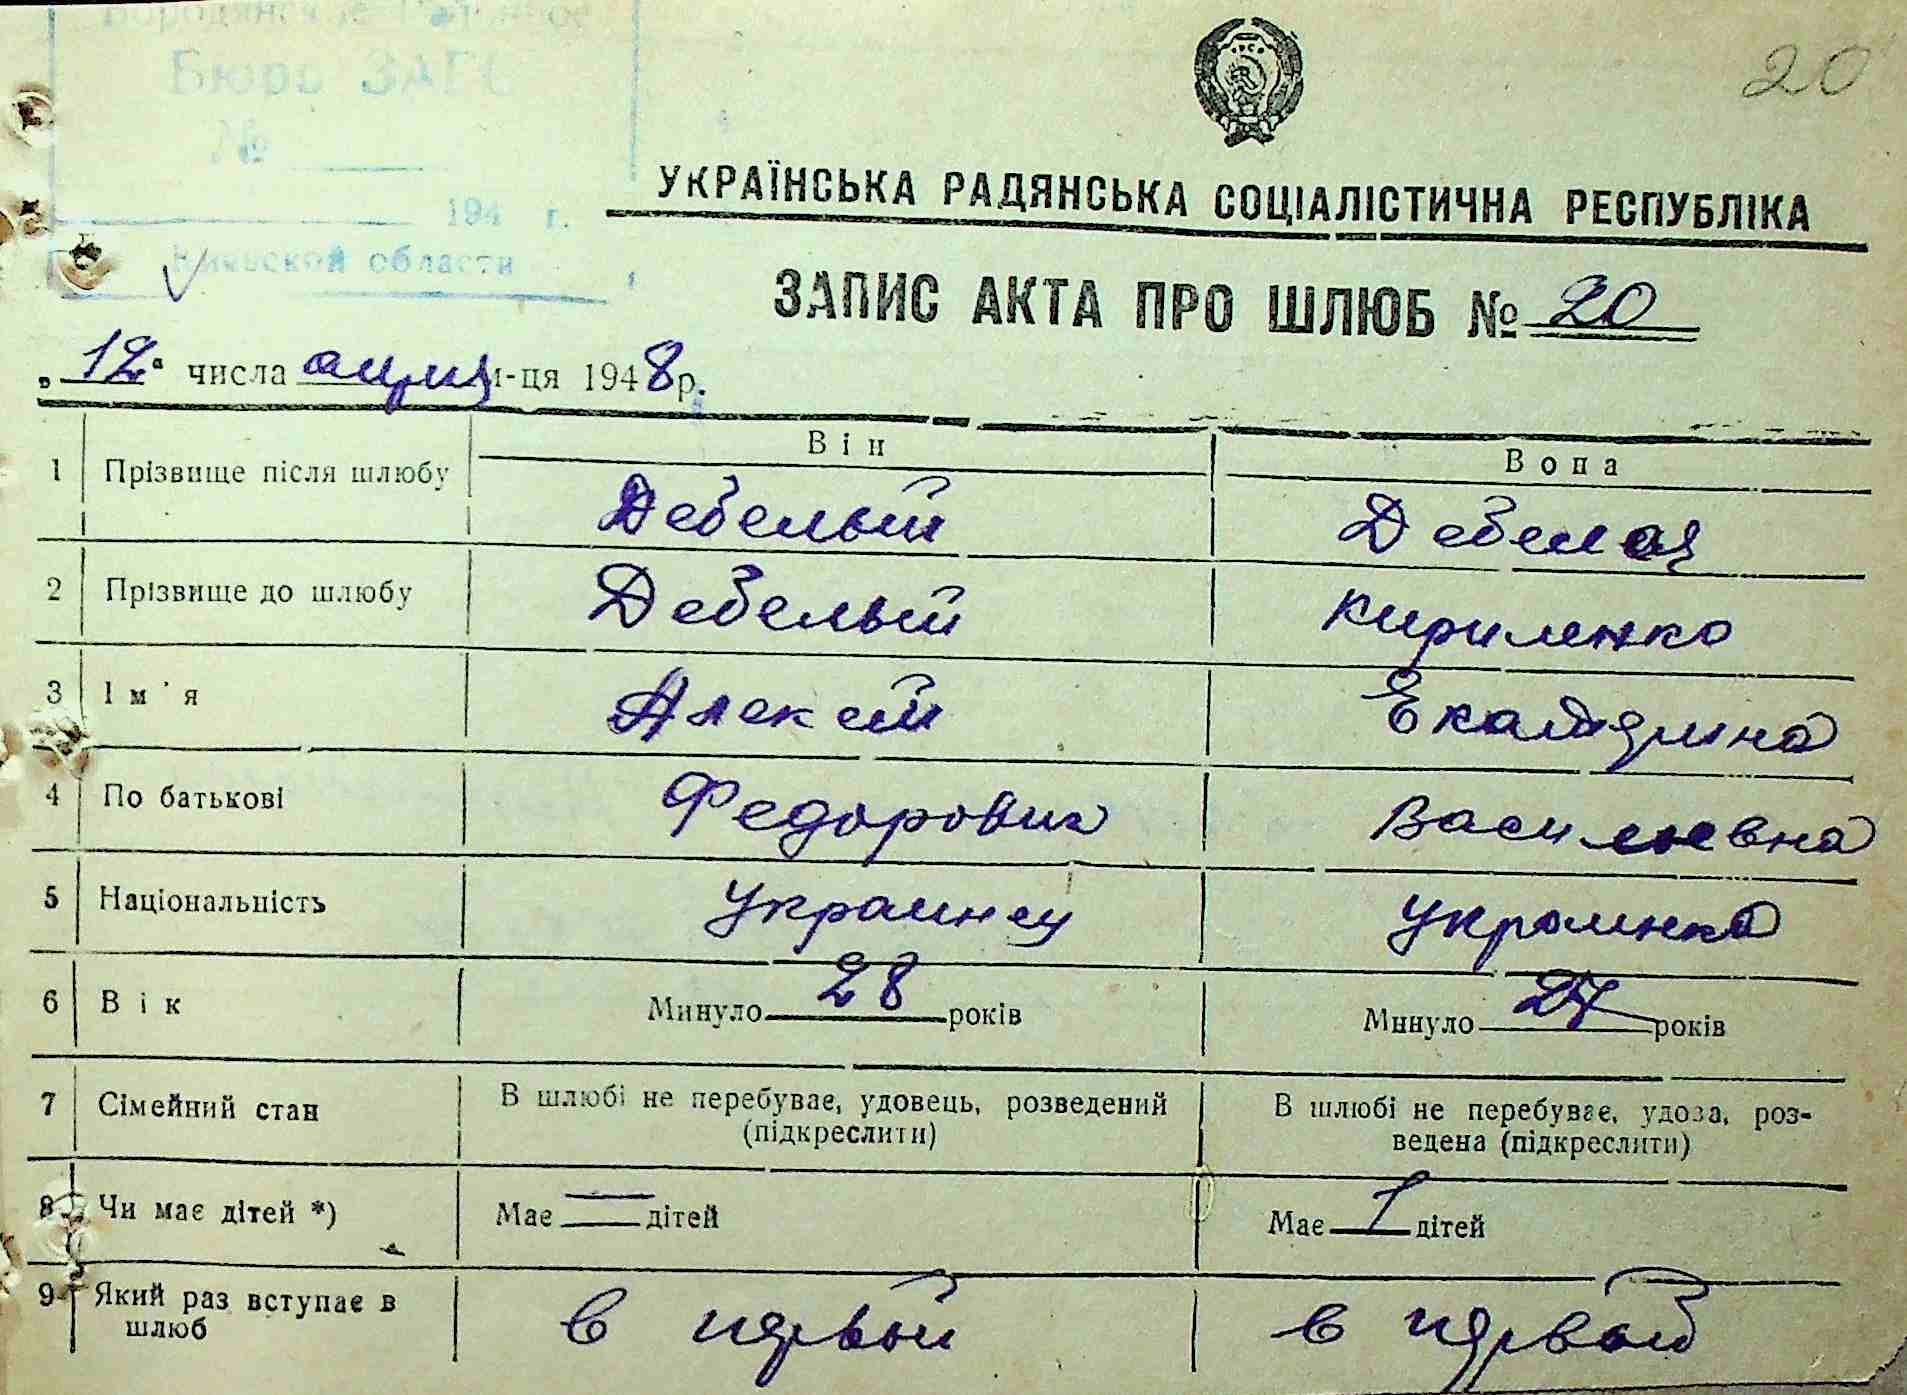 Бородянское Районное
Бюро ЗАГС
№
194 г.
Киевской области
20
УКРАЇНСЬКА РАДЯНСЬКА СОЦІАЛІСТИЧНА РЕСПУБЛІКА
ЗАПИС АКТА ПРО ШЛЮБ № 20
„12“ числа априля м-ця 1948 р.
Він Вона
1 Прізвище після шлюбу Дебелый Дебелая
2 Прізвище до шлюбу Дебелый Кириленко
3 Ім'я Алексей Екатярина
4 По батькові Федорович Васильевна
5 Національність Украинец Украинка
6 Вік Минуло 28 років Минуло 27 років
7 Сімейний стан В шлюбі не перебуває, удовець, розведений (підкреслити) В шлюбі не перебуває, удова, роз-
ведена (підкреслити)
8 Чи має дітей *) Має — дітей Має 1 дітей
9 Який раз вступає в шлюб в первый в первый